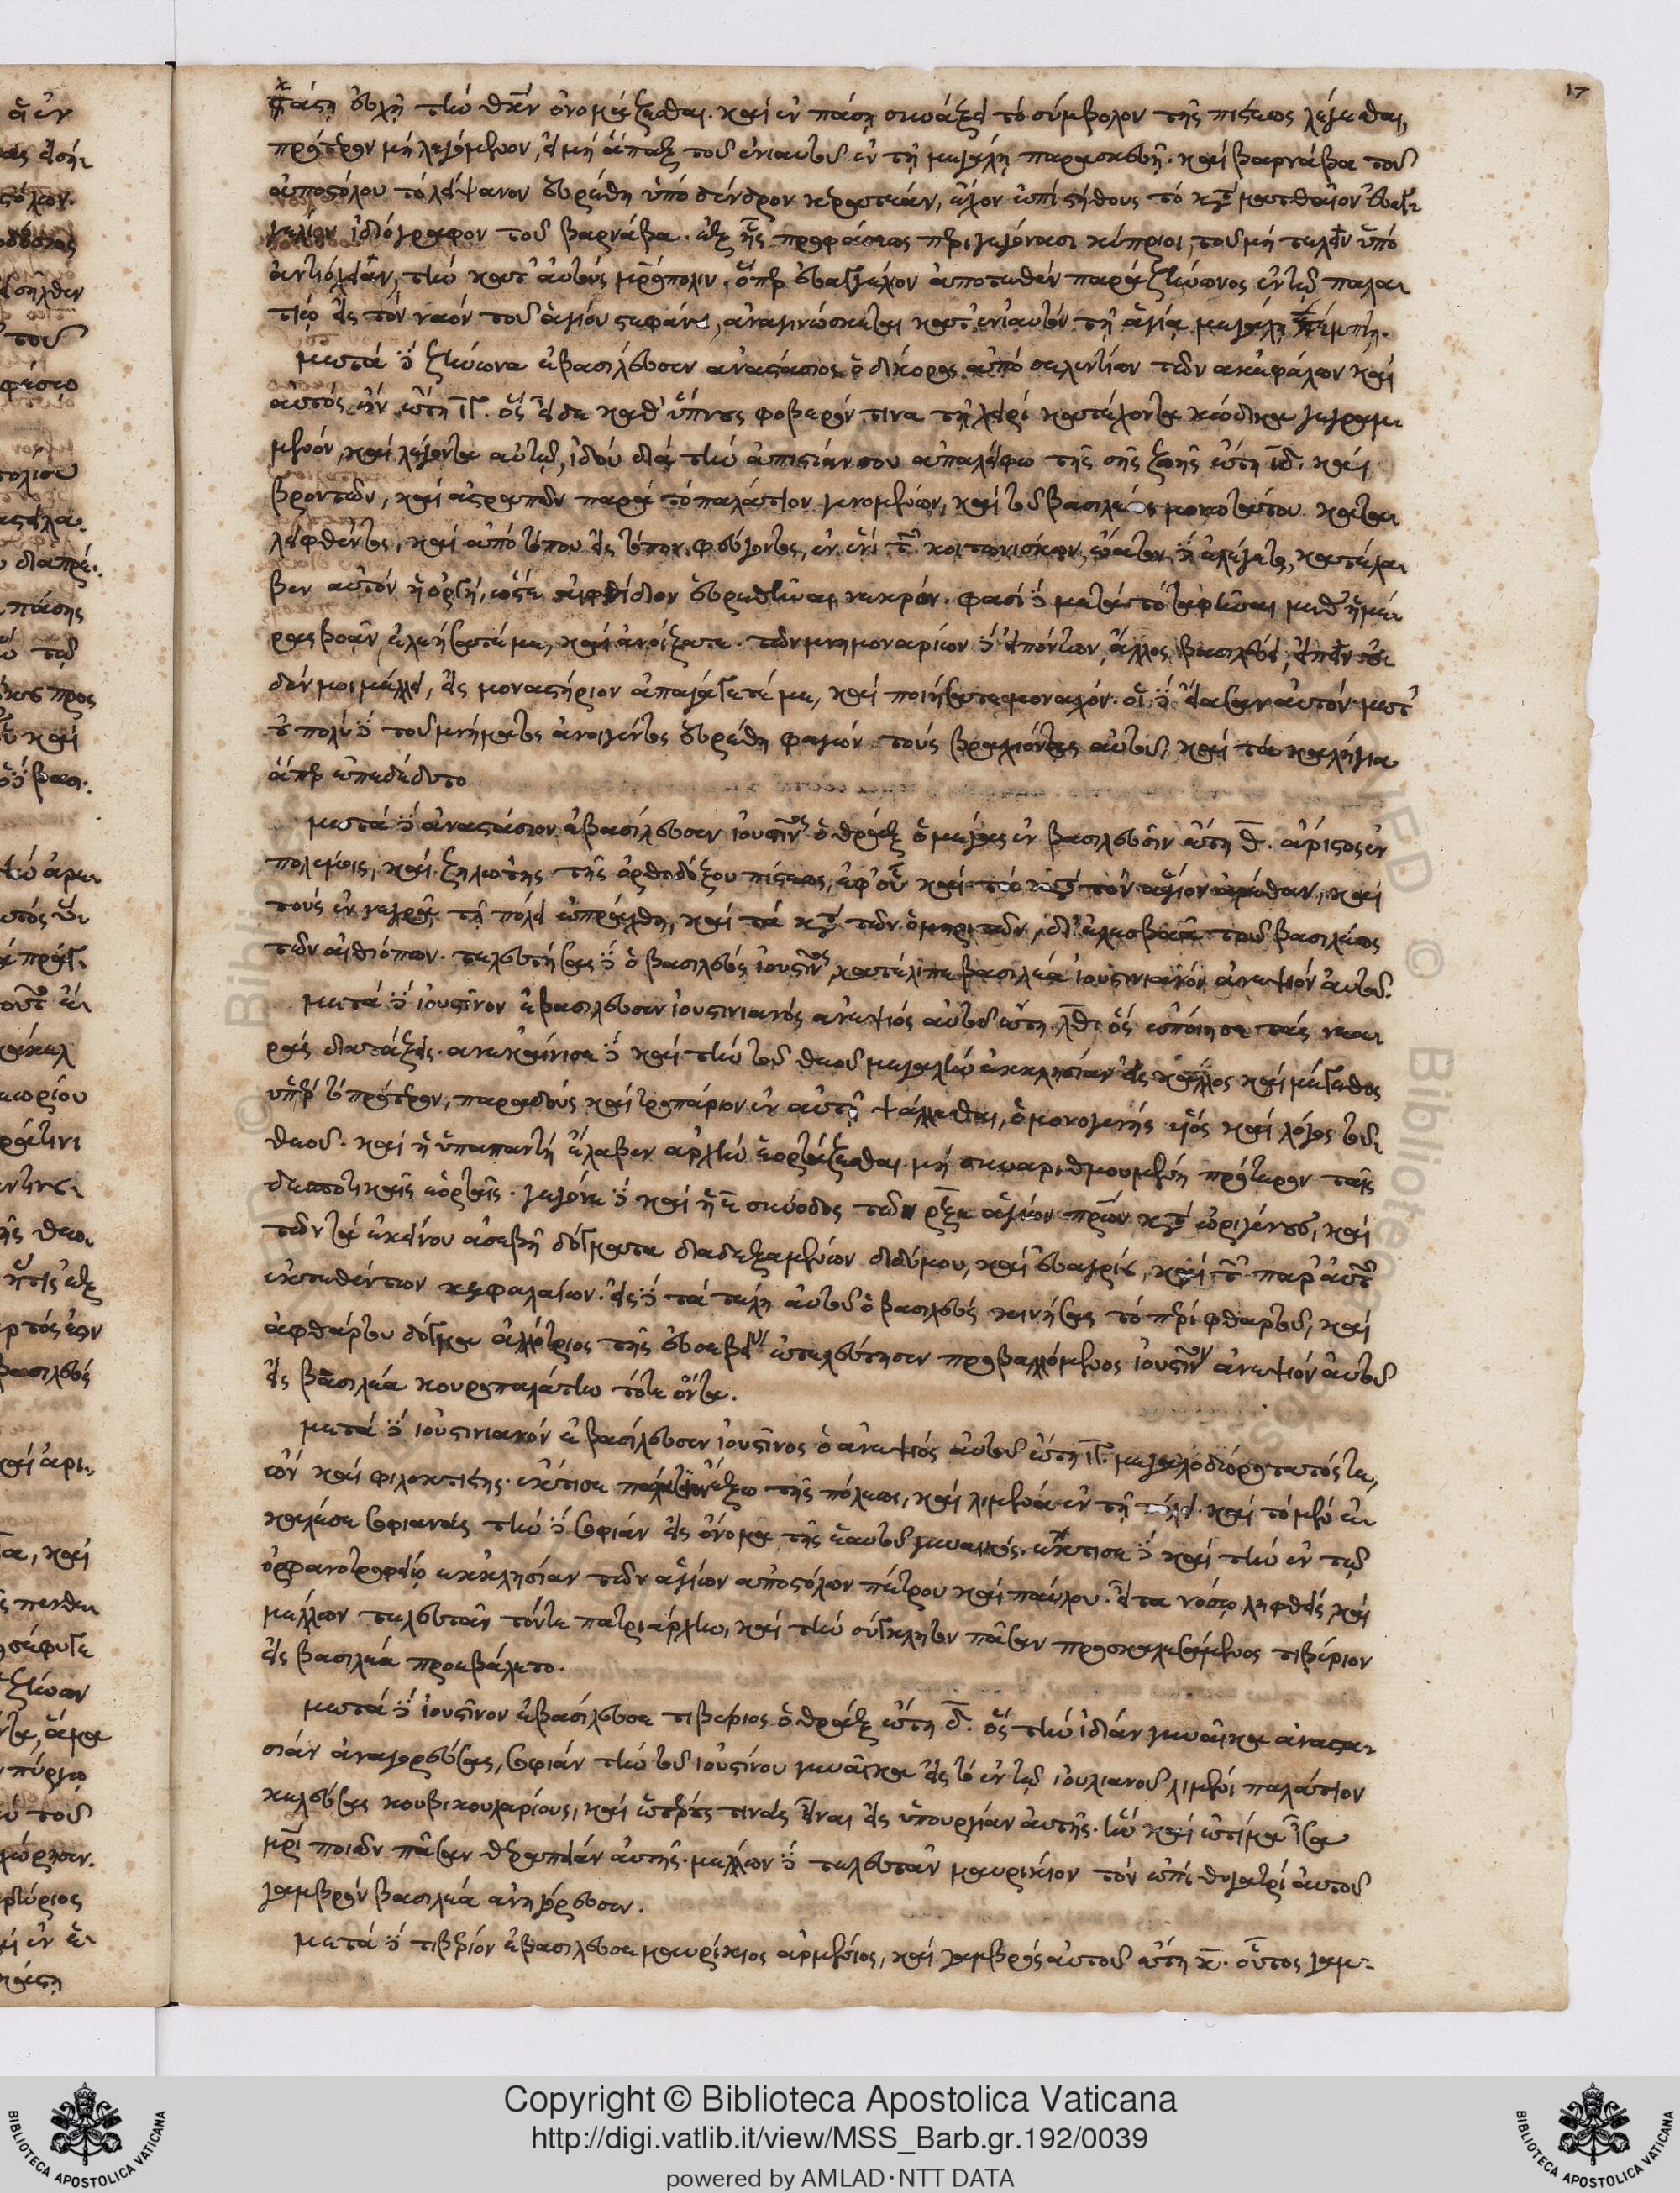 17
πάσῃ εὐχῇ τὴν θκον ὀνομάζεσθαι. καὶ ἐν πάσῃ συνάξει τὸ σύμβολον τῆς πίστεως λέγεσθαι,
πρότερον μὴ λεγόμενον, εἰ μὴ ἅπαξ τοῦ ἐνιαυτοῦ ἐν τῇ μεγάλῃ παρασκευῇ. καὶ βαρνάβα τοῦ
ἀποστόλου τὸ λείψανον εὑρέθη ὑπὸ δένδρον κερατέαν, ἔχον ἐπὶ στήθους τὸ κατὰ ματθαῖον εὐαγ
γέλιον ἰδιόγραφον τοῦ βαρνάβα. ἐξ ἧς προφάσεως περιγεγόνασι κύπριοι, τοῦ μὴ τελεῖν ὑπὸ
ἀντιόχειαν, τὴν κατ' αὐτοὺς μητρόπολιν. ὅπερ εὐαγγέλιον ἀποτεθὲν παρὰ ζήνωνος ἐν τῷ παλα
τίῳ εἰς τὸν ναὸν τοῦ ἁγίου στεφάνου, ἀναγινώσκεται κατ' ἐνιαυτὸν τῇ ἁγίᾳ μεγάλῃ πέμπτῃ.
μετὰ δὲ ζήνωνα ἐβασίλευσεν ἀναστάσιος ὁ δίκορος ἀπὸ σελεντίων τῶν ἀκεφάλων καὶ
αὐτὸς ὢν ἔτη κζ. ὃς εἶδε καθ' ὕπνους φοβερόν τινα τῇ χειρὶ κατέχοντα κώδικα γεγραμ
μένον, καὶ λέγοντα αὐτῷ, ἰδοὺ διὰ τὴν ἀπιστίαν σου ἀπαλείφω τῆς σῆς ζωῆς ἔτη ιδ. καὶ
βροντῶν, καὶ ἀστραπῶν παρὰ τὸ παλάτιον γενομένων, καὶ τοῦ βασιλέως μονωτάτου καταλει
λειφθέντος, καὶ ἀπὸ τόπου εἰς τόπον φεύγοντος, ἐν ἑνὶ τῶν κοιτωνίσκων, κατέλα
βεν αὐτὸν ἡ ὀργή, ὥστε αἰφνίδιον εὑρεθῆναι νεκρόν. φασὶ δὲ μετὰ τὸ ταφῆναι μεθ' ἡμέ
ρας βοᾶν, ἐλεήσατέ με, καὶ ἀνοίξατε. τῶν μνημοναρίων δὲ εἰπόντων, ἄλλος βασιλεύει, εἰπεῖν οὐ
δέν μοι μέλλει, εἰς μοναστήριον ἀπαγάγετέ με, καὶ ποιήσατε μοναχόν. οἱ δὲ εἴασαν αὐτόν. μετ'
οὐ πολὺ δὲ τοῦ μνήματος ἀνοιγέντος εὑρέθη φαγὼν τοὺς βραχίονας αὐτοῦ, καὶ τὰ καλίγια
ἅπερ ὑπεδέδυτο
μετὰ δὲ ἀναστάσιον ἐβασίλευσεν ἰουστῖνος ὁ θρᾷξ ὁ μέγας ἐν βασιλεῦσιν ἔτη θ. ἄριστος ἐν
πολέμοις, καὶ ζηλωτὴς τῆς ὀρθοδόξου πίστεως, ἐφ' οὗ καὶ τὰ κατὰ τὸν ἅγιον ἀρέθαν, καὶ
τοὺς ἐν νεγρᾷ τῇ πόλει ἐπράχθη, καὶ τὰ κατὰ τῶν ὁμηριτῶν, δι' ἐλεσβαὰ τοῦ βασιλέως
τῶν αἰθιόπων. τελευτήσας δὲ ὁ βασιλεὺς ἰουστῖνος κατέλιπε βασιλέα ἰουστινιανὸν ἀνεψιὸν αὐτοῦ.
μετὰ δὲ ἰουστῖνον ἐβασίλευσεν ἰουστινιανὸς ἀνεψιὸς αὐτοῦ ἔτη λθ. ὃς ἐποίησε τὰς νεα
ρὰς διατάξεις. ἀνεκαίνισε δὲ καὶ τὴν τοῦ θεοῦ μεγάλην ἐκκλησίαν εἰς κάλλος καὶ μέγεθος
ὑπὲρ τὸ πρότερον, παραδοὺς καὶ τροπάριον ἐν αὐτῇ ψάλλεσθαι, ὁ μονογενὴς υἱὸς καὶ λόγος τοῦ
θεοῦ. καὶ ἡ ὑπαπαντὴ ἔλαβεν ἀρχὴν ἑορτάζεσθαι μὴ συναριθμουμένη πρότερον ταῖς
δεσποτικαῖς ἑορταῖς. γέγονε δὲ καὶ ἡ ε σύνοδος τῶν ρξε ἁγίων πρων κατὰ ὠριγένους, καὶ
τῶν τὰ ἐκείνου ἀσεβῆ δόγματα διαδεξαμένων διδύμου, καὶ εὐαγρίου, καὶ τῶν παρ' αὐτῶν
ἐκτεθέντων κεφαλαίων. εἰς δὲ τὰ τέλη αὐτοῦ ὁ βασιλεὺς κινήσας τὸ περὶ φθαρτοῦ, καὶ
ἀφθάρτου δόγμα ἀλλότριος τῆς εὐσεβείας ἐτελεύτησεν προβαλλόμενος ἰουστῖνον ἀνεψιὸν αὐτοῦ
εἰς βασιλέα κουροπαλάτην τότε ὄντα.
μετὰ δὲ ἰουστινιανὸν ἐβασίλευσεν ἰουστῖνος ὁ ἀνεψιὸς αὐτοῦ ἔτη ιγ. μεγαλοδωρότατός τε,
ὢν καὶ φιλοκτίστης. ἔκτισε παλάτιον ἔξω τῆς πόλεως, καὶ λιμένα ἐν τῇ πόλει. καὶ τὸ μὲν ἐ
κάλεσε σοφιανάς τὴν δὲ σοφίαν εἰς ὄνομα τῆς ἑαυτοῦ γυναικός. ἔκτισε δὲ καὶ τὴν ἐν τῷ
ὀρφανοτροφείῳ ἐκκλησίαν τῶν ἁγίων ἀποστόλων πέτρου καὶ παύλου. εἶτα νόσῳ ληφθείς, καὶ
μέλλων τελευτᾶν τόν τε πατριάρχην, καὶ τὴν σύγκλητον πᾶσαν προσκαλεσάμενος τιβέριον
εἰς βασιλέα προεβάλετο.
μετὰ δὲ ἰουστῖνον ἐβασίλευσε τιβέριος ὁ θρᾷξ ἔτη δ. ὃς τὴν ἰδίαν γυναῖκα ἀναστα
σίαν ἀναγορεύσας, σοφίαν τὴν τοῦ ἰουστίνου γυναῖκα εἰς τὸ ἐν τῷ ἰουλιανοῦ λιμένι παλάτιον
κελεύσας κουβικουλαρίους, καὶ ἑτέρους τινὰς εἶναι εἰς ὑπουργίαν αὐτῆς. ἣν καὶ ἐτίμα ἴσα
μρὶ ποιῶν πᾶσαν θεραπείαν αὐτῆς. μέλλων δὲ τελευτᾶν μαυρίκιον τὸν ἐπὶ θυγατρὶ αὐτοῦ
γαμβρὸν βασιλέα ἀνηγόρευσεν.
μετὰ δὲ τιβέριον ἐβασίλευσε μαυρίκιος ἀρμένιος, καὶ γαμβρὸς αὐτοῦ ἔτη κ. οὗτος γαμ
Copyright © Biblioteca Apostolica Vaticana
http://digi.vatlib.it/view/MSS_Barb.gr.192/0039
powered by AMLAD·NTT DATA